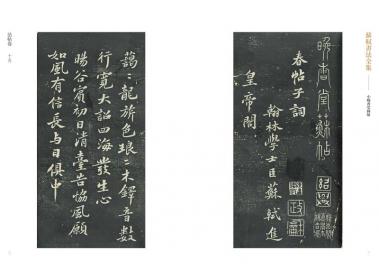 蘇軾書法全集
晚香堂蘇帖
春帖子詞
翰林學士臣蘇軾進
皇帝閣
藹〻龍旂色琅〻木鐸音數
行寬大詔四海發生心
暘谷賓初日清臺告協風願
如風有信長與日俱中